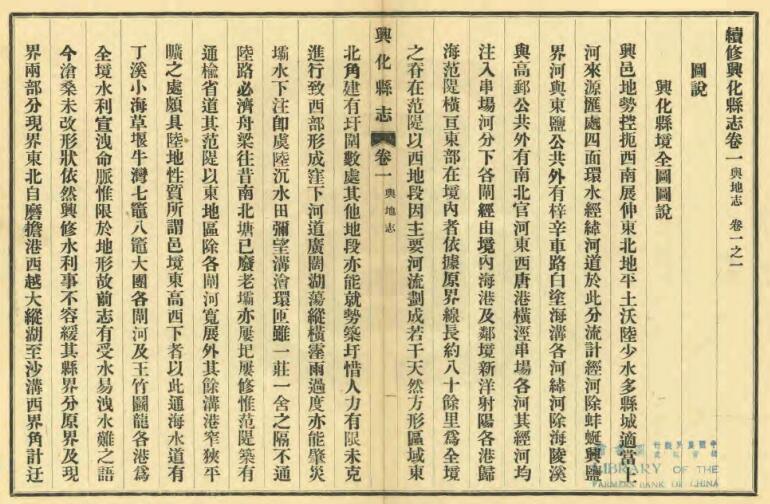 續修興化縣志卷一 輿地志 卷一之一
圖說
興化縣境全圖圖說
興邑地勢控扼西南展伸東北地平土沃陸少水多縣城適當上
河來源匯處四面環水經緯河道於此分流計經河除蚌蜒興鹽
界河與東鹽公共外有梓辛車路白塗海溝各河緯河除海陵溪
與高郵公共外有南北官河東西唐港橫涇串場各河其經河均
注入串場河分下各閘經由境內海港及鄰境新洋射陽各港歸
海范隄橫亘東部在境內者依據原界線長約八十餘里爲全境
之脊在范隄以西地段因主要河流劃成若干天然方形區域東
興化縣志 卷一 輿地志
北角建有圩圍數處其他地段亦能就勢築圩惜人力有限未克
進行致西部形成窪下河道廣闊湖蕩縱橫霪雨過度亦能肇災
壩水下注卽虞陸沉水田彌望溝洫環匝雖一莊一舍之隔不通
陸路必濟舟梁往昔南北塘已廢老壩亦屢圯屢修惟范隄築有
通楡省道其范隄以東地區除各閘河寬展外其餘溝港窄狹平
曠之處頗具陸地性質所謂邑境東高西下者以此通海水道有
丁溪小海草堰牛灣七竈八竈大團各閘河及王竹鬭龍各港爲
全境水利宣洩命脈惟限於地形故前志有受水易洩水難之語
今滄桑未改形狀依然興修水利事不容緩其縣界分原界及現
界兩部分現界東北自磨擔港西越大縱湖至沙溝西界角計迂
中國農民銀行
LIBRARY OF THE
FARMERS BANK OF CHINA